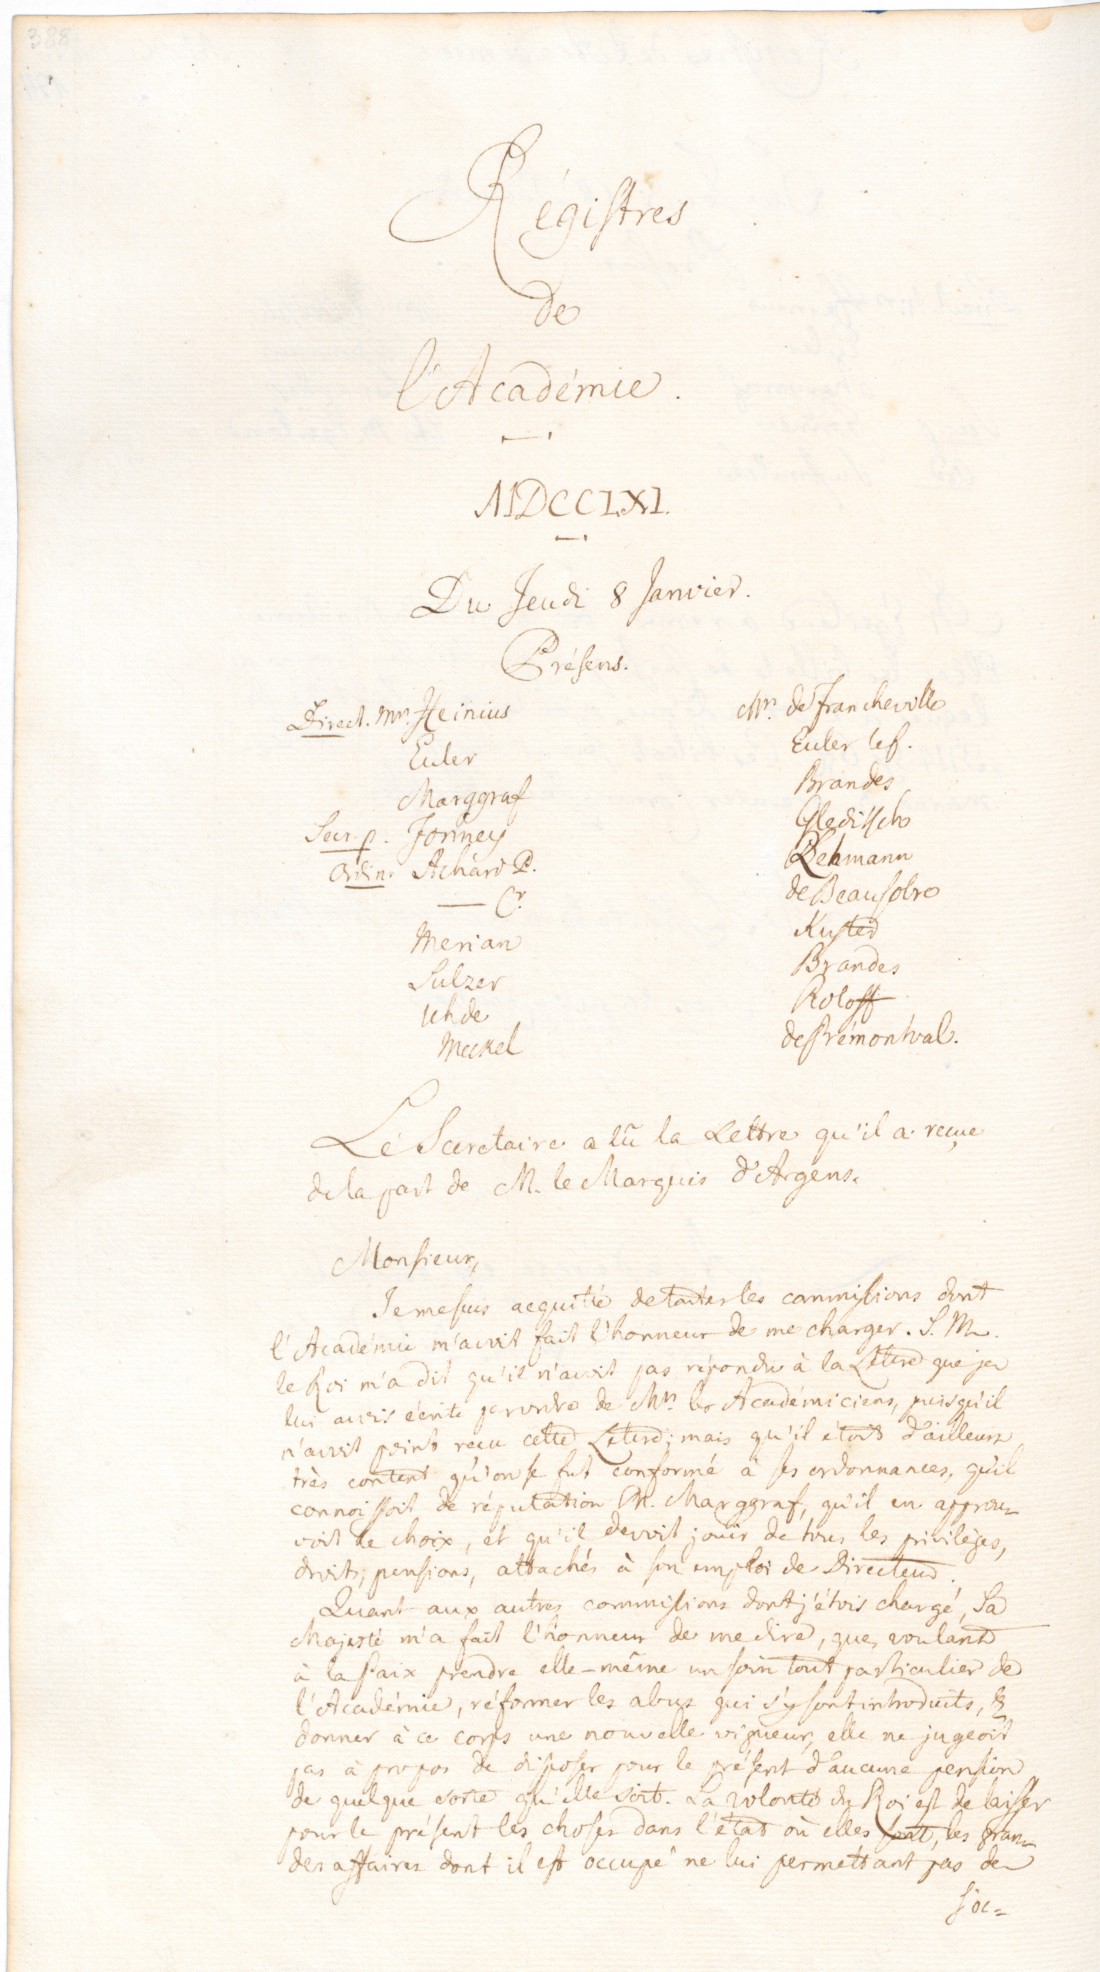 388
Régistres
de
l'Académie.
MDCCLXI.
Du Jeudi 8 Janvier.
Présens.
Direct. Mrs. Heinius
Euler
Marggraf
Secr. p. Formey
Ordin. Achard P.
— Cr.
Merian
Sulzer
Uhde
Meckel
Mrs. de Francheville
Euler le f.
Brandes
Gleditsch
Lehmann
de Beausobre
Kuster
Brandes
Roloff
de Prémontval.
Le Secretaire a lû la Lettre qu'il a reçue
de la part de M. le Marquis d'Argens.
Monsieur,
Je me suis acquitté de toutes les commissions dont
l'Académie m'avoit fait l'honneur de me charger. S. M.
le Roi m'a dit qu'il n'avoit pas répondu à la Lettre que je
lui avois écrite par ordre de Mrs. les Académiciens, puisqu'il
n'avoit point reçu cette Lettre; mais qu'il étoit d'ailleurs
très content qu'on se fut conformé à ses ordonnances, qu'il
connoissoit de réputation M. Marggraf, qu'il en approu-
voit le choix, et qu'il devoit jouïr de tous les privilèges,
droits, pensions, attachés à son emploi de Directeur.
Quant aux autres commissions dont j'étois chargé, Sa
Majesté m'a fait l'honneur de me dire, que, voulant
à la Paix prendre elle-même un soin tout particulier de
l'Académie, réformer les abus qui s'y sont introduits, &
donner à ce corps une nouvelle vigueur, elle ne jugeoit
pas à propos de disposer pour le présent d'aucune pension
de quelque sorte qu'elle soit. La volonté du Roi est de laisser
pour le présent les choses dans l'état où elles sont, les gran-
des affaires dont il est occupé ne lui permettant pas de
s'oc=